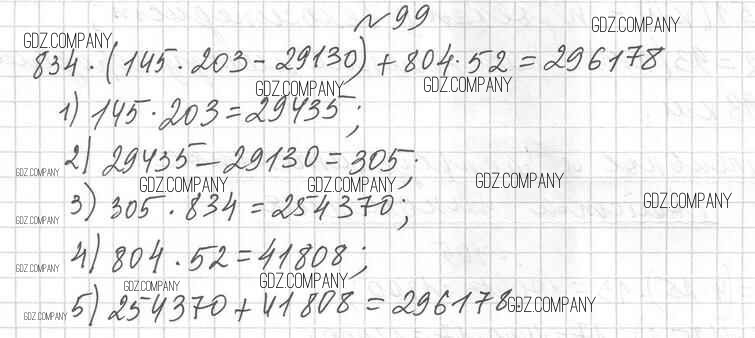 №99
GDZ.COMPANY
GDZ.COMPANY
834·(145·203-29130)+804·52=296178
GDZ.COMPANY
GDZ.COMPANY
1) 145·203=29435;
2) 29435-29130=305;
GDZ.COMPANY
GDZ.COMPANY
GDZ.COMPANY
GDZ.COMPANY
GDZ.COMPANY
3) 305·834=254370;
GDZ.COMPANY
4) 804·52=41808;
GDZ.COMPANY
GDZ.COMPANY
GDZ.COMPANY
5) 254370+41808=296178
GDZ.COMPANY
GDZ.COMPANY